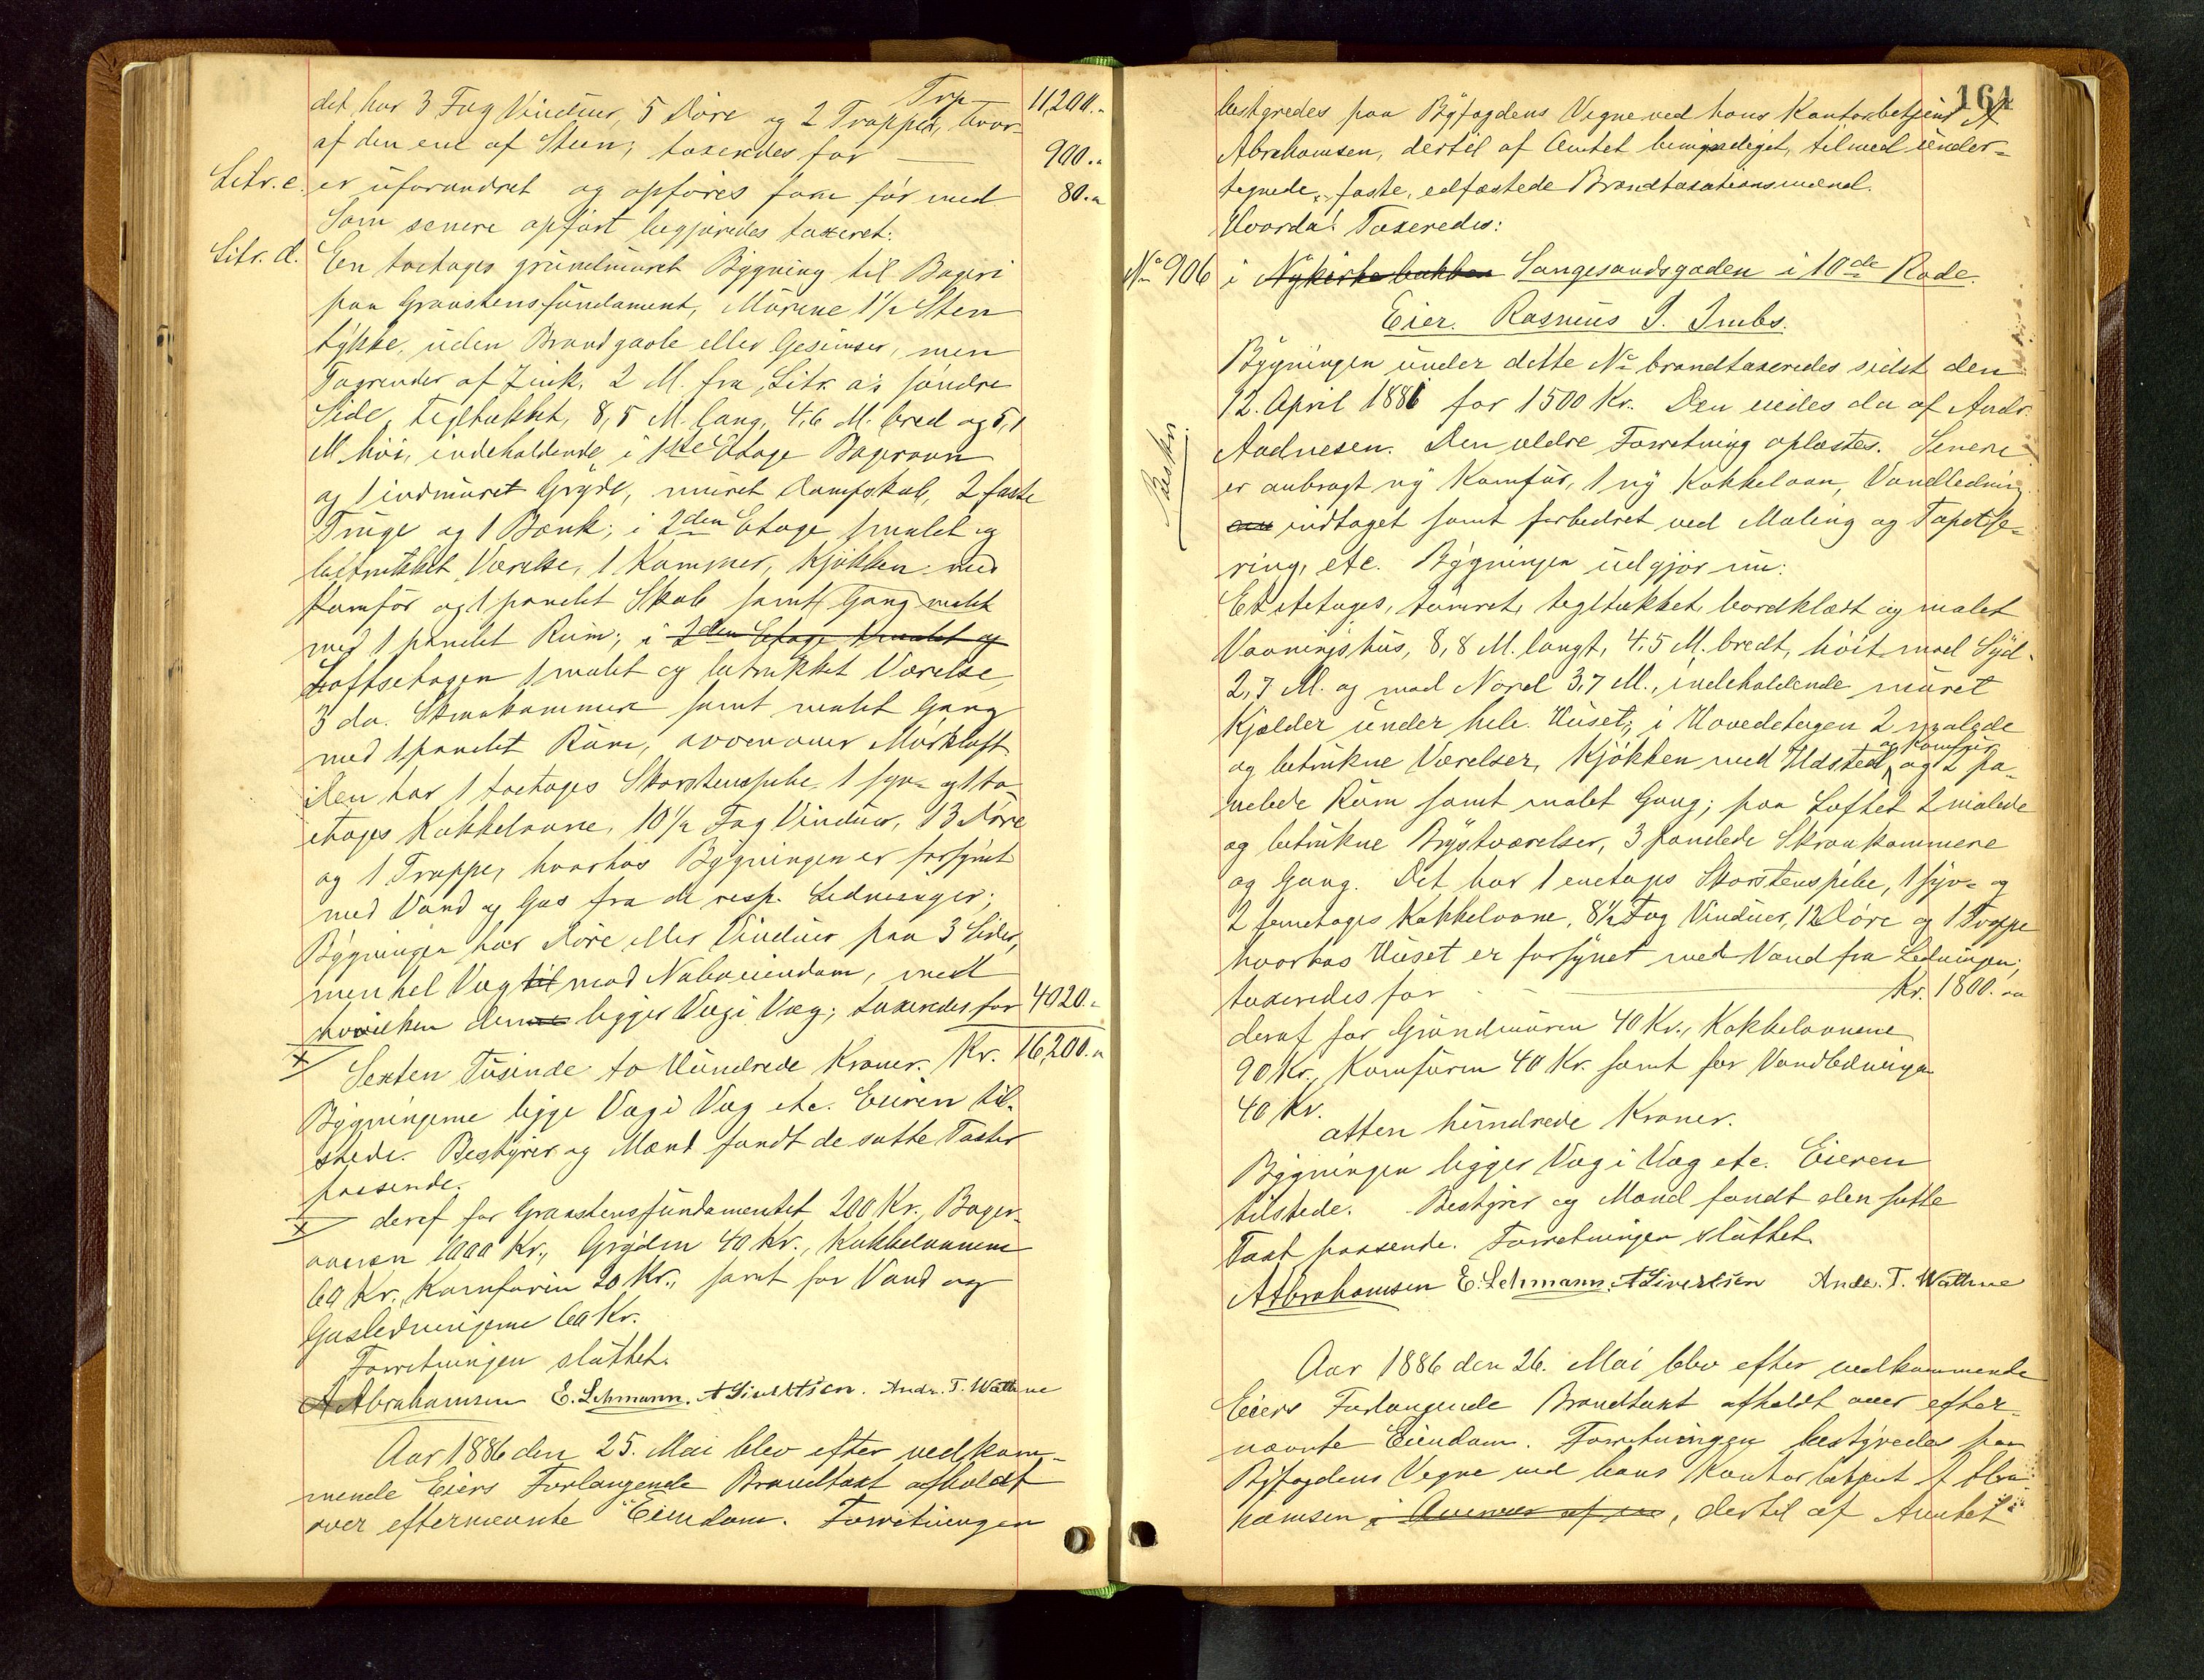 Trp 11,200.„
det har 3 Fag Vinduer, 5 Døre og 2 Trapper, hvor-
af den ene af Steen; taxeredes for 900.„
Litr. c. er uforandret og opføres som før med 80.„
Som senere opført begjæredes taxeret:
Litr. d. En toetages grundmuret Bygning til Bageri
paa Graastensfundament, Murene 1½ Sten
tykke, uden Brandgavle eller Gesimser, men
Tagrender af Zink, 2 M. fra Litr. a's søndre
Side, tegltækket, 8,5 M. lang, 4,6 M. bred og 5,1
M. høi, indeholdende i 1ste Etage Bagerovn
og 1 indmuret Gryde, muret Dampskab, 2 faste
Truge og 1 Bænk; i 2den Etage 1 malet og
betrukket Værelse, 1 Kammer, Kjøkken med
Komfur og 1 panelet Skab samt Gang malet
med 1 panelet Rum; i 2den Etage 1 malet og
Loftsetagen 1 malet og betrukket Værelse,
3 do. Skraakammere samt malet Gang
med 1 panelet Rum, ovenover Mørkloft.
Den har 1 toetages Skorstenspibe, 1 fyr- og 1 to-
etages Kakkelovne, 10½ Fag Vinduer, 13 Døre
og 1 Trappe, hvorhos Bygningen er forsynet
med Vand og Gas fra de resp. Ledninger;
Bygningen har Døre eller Vinduer paa 3 Sider,
men hel Væg til mod Naboeiendom, med
hvilken denne ligger Væg i Væg; taxeredes for 4020.„
Sexten Tusinde to Hundrede Kroner. Kr. 16,200.„
Bygningerne ligge Væg i Væg etc. Eieren til-
stede. Bestyrer og Mænd fandt de satte Taxter
passende.
deraf for Graastensfundamentet 200 Kr., Bager-
ovnen 1000 Kr., Gryden 40 Kr., Kakkelovnene
60 Kr., Komfuren 20 Kr., samt for Vand og
Gasledningerne 60 Kr.
Forretningen sluttet.
A Abrahamsen E. Lehmann. A Sivertsen. Andr. T. Wathne
Aar 1886 den 25. Mai blev efter vedkom-
mende Eiers Forlangende Brandtaxt afholdt
over efternævnte Eiendom. Forretningen
164
bestyredes paa Byfogdens Vegne ved hans Kontorbetjent A
Abrahamsen, dertil af Amtet bemyndiget, tilmed under-
tegnede, faste, edfæstede Brandtaxationsmænd.
Hvorda! Taxeredes:
No 906 i Nykirkebakken Langesandsgaden i 10de Rode.
Eier. Rasmus J. Imbs.
Bygningen under dette No brandtaxeredes sidst den
12. April 1881 for 1500 Kr. Den eiedes da af Andr.
Aadnesen. Den ældre Forretning oplæstes. Senere
er anbragt ny Komfur, 1 ny Kakkelovn, Vandledning
indtaget samt forbedret ved Maling og Tapetse-
ring, etc. Bygningen udgjør nu:
Et etetages, tømret, tegltækket, bordklædt og malet
Vaaningshus, 8,8 M. langt, 4,5 M. bredt, høit mod Syd
2,7 M. og mod Nord 3,7 M., indeholdende muret
Kjælder under hele Huset; i Hovedetagen 2 malede
og betrukne Værelser, Kjøkken med Ildsted og Komfur og 2 pa-
nelede Rum samt malet Gang; paa Loftet 2 malede
og betrukne Brystværelser, 3 panelede Skraakammere
og Gang. Det har 1 enetages Skorstenspibe, 1 fyr- og
2 femetages Kakkelovne, 8½ Fag Vinduer, 12 Døre og 1 Trappe
hvorhos Huset er forsynet med Vand fra Ledningen;
taxeredes for Kr. 1800.„
deraf for Grundmuren 40 Kr., Kakkelovnene
90 Kr., Komfuren 40 Kr. samt for Vandledningen
40 Kr.
atten hundrede Kroner.
Bygningen ligger Væg i Væg etc. Eieren
tilstede. Bestyrer og Mænd fandt den satte
Taxt passende. Forretningen sluttet.
A Abrahamsen E. Lehmann. A Sivertsen Andr. T. Wathne
Aar 1886 den 26. Mai blev efter vedkommende
Eiers Forlangende Brandtaxt afholdt over efter-
nævnte Eiendom. Forretningen bestyredes paa
Byfogdens Vegne ved hans Kontorbetjent A Abra-
hamsen, dertil af Amtet